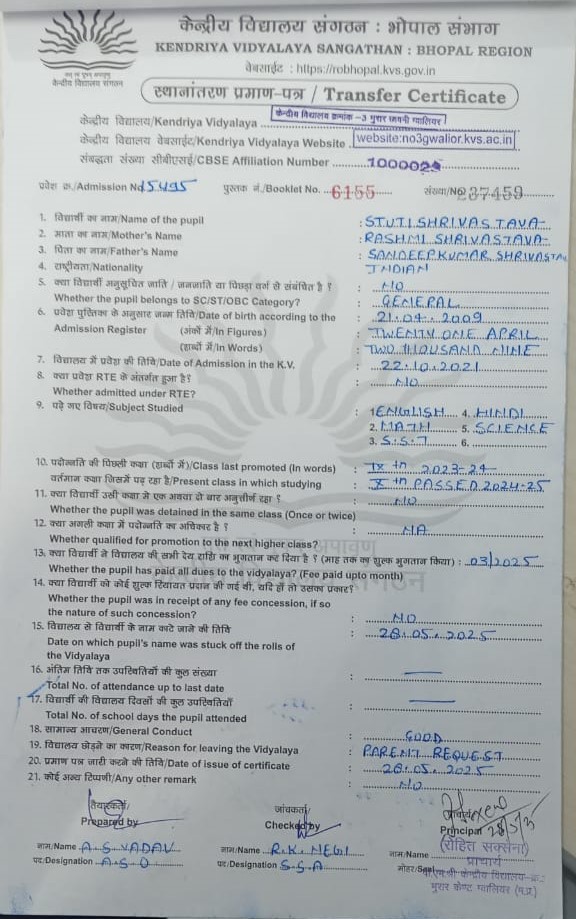 केन्द्रीय विद्यालय संगठन : भोपाल संभाग
KENDRIYA VIDYALAYA SANGATHAN : BHOPAL REGION
वेबसाईट : https://robhopal.kvs.gov.in
केन्द्रीय विद्यालय संगठन
स्थानांतरण प्रमाण-पत्र / Transfer Certificate
केन्द्रीय विद्यालय/Kendriya Vidyalaya केन्द्रीय विद्यालय क्रमांक -3 मुरार छावनी ग्वालियर
केन्द्रीय विद्यालय वेबसाईट/Kendriya Vidyalaya Website website:no3gwalior.kvs.ac.in
संबद्धता संख्या सीबीएसई/CBSE Affiliation Number 1000029
प्रवेश क्र./Admission No. 15495 पुस्तक नं./Booklet No. 6155 संख्या/No 237459
1. विद्यार्थी का नाम/Name of the pupil : STUTI SHRIVASTAVA
2. माता का नाम/Mother's Name : RASHMI SHRIVASTAVA
3. पिता का नाम/Father's Name : SANDEEP KUMAR SHRIVASTAV
4. राष्ट्रीयता/Nationality : INDIAN
5. क्या विद्यार्थी अनुसूचित जाति / जनजाति या पिछड़ा वर्ग से संबंधित है ? : NO
Whether the pupil belongs to SC/ST/OBC Category? : GENERAL
6. प्रवेश पुस्तिका के अनुसार जन्म तिथि/Date of birth according to the : 21.04.2009
Admission Register (अंकों में/In Figures) : TWENTY ONE APRIL
(शब्दों में/In Words) : TWO THOUSAND NINE
7. विद्यालय में प्रवेश की तिथि/Date of Admission in the K.V. : 22.10.2021
8. क्या प्रवेश RTE के अंतर्गत हुआ है? : NO
Whether admitted under RTE?
9. पढ़े गए विषय/Subject Studied : 1 ENGLISH 4. HINDI
2. MATH 5. SCIENCE
3. S.S.T 6.
10. पदोन्नति की पिछली कक्षा (शब्दों में)/Class last promoted (In words) : IX th 2023-24
वर्तमान कक्षा जिसमें पढ़ रहा है/Present class in which studying : X th PASSED 2024-25
11. क्या विद्यार्थी उसी कक्षा में एक अथवा दो बार अनुत्तीर्ण रहा ? : NO
Whether the pupil was detained in the same class (Once or twice)
12. क्या अगली कक्षा में पदोन्नति का अधिकार है ? : NA
Whether qualified for promotion to the next higher class?
13. क्या विद्यार्थी ने विद्यालय की सभी देय राशि का भुगतान कर दिया है ? (माह तक का शुल्क भुगतान किया) : 03/2025
Whether the pupil has paid all dues to the vidyalaya? (Fee paid upto month)
14. क्या विद्यार्थी को कोई शुल्क रियायत प्रदान की गई थी, यदि हाँ तो उसका प्रकार?
Whether the pupil was in receipt of any fee concession, if so
the nature of such concession? : NO
15. विद्यालय से विद्यार्थी के नाम काटे जाने की तिथि : 28.05.2025
Date on which pupil's name was stuck off the rolls of
the Vidyalaya
16. अंतिम तिथि तक उपस्थितियों की कुल संख्या : —
Total No. of attendance up to last date
17. विद्यार्थी की विद्यालय दिवसों की कुल उपस्थितियाँ : —
Total No. of school days the pupil attended
18. सामान्य आचरण/General Conduct : GOOD
19. विद्यालय छोड़ने का कारण/Reason for leaving the Vidyalaya : PARENT REQUEST
20. प्रमाण पत्र जारी करने की तिथि/Date of issue of certificate : 28.05.2025
21. कोई अन्य टिप्पणी/Any other remark : NO
तैयारकर्ता/ जांचकर्ता/
Prepared by Checked by Principal 28/5/25
नाम/Name A.S YADAV नाम/Name R.K. NEGI नाम/Name (रोहित सक्सेना)
पद/Designation A.S.O पद/Designation S.S.A मोहर/Seal प्राचार्य
पी.एम.श्री केन्द्रीय विद्यालय
मुरार केण्ट ग्वालियर (म.प्र.)